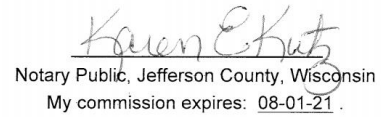 Karen E Kutz
Notary Public, Jefferson County, Wisconsin
My commission expires: 08-01-21 .